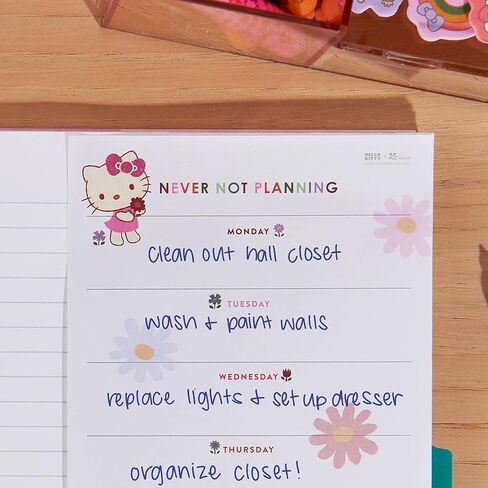 HELLO KITTY
NEVER NOT PLANNING
MONDAY
clean out hall closet
TUESDAY
wash & paint walls
WEDNESDAY
replace lights & set up dresser
THURSDAY
organize closet!